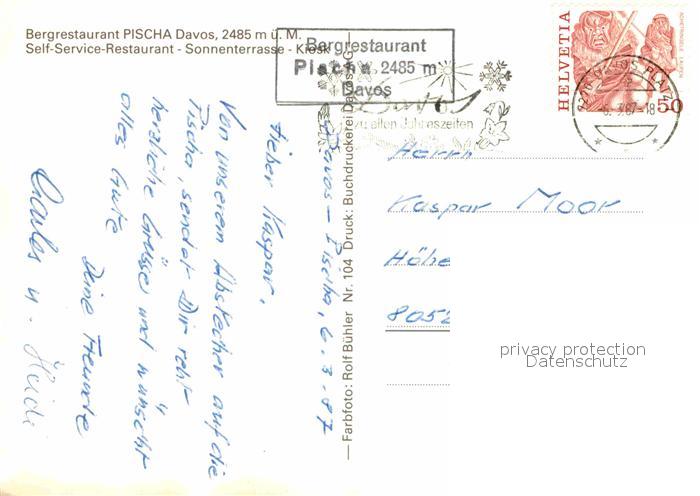 Bergrestaurant PISCHA Davos, 2485 m ü. M.
Self-Service-Restaurant - Sonnenterrasse - Kiosk
Bergrestaurant
Pischa 2485 m
Davos
Davos
zu allen Jahreszeiten
HELVETIA
50
7270 DAVOS PLATZ
6. 3.87-18
Davos - Pischa, 6.3.87
Lieber Kaspar,
Von unserem Abstecher auf die
Pischa, sendet Dir recht
herzliche Grüsse und wünscht
alles Gute
Deine Freunde
Charles u. Heidi
— Farbfoto: Rolf Bühler Nr. 104 Druck: Buchdruckerei Davos AG —
Herrn
Kaspar Moor
Höhe
8052
privacy protection
Datenschutz